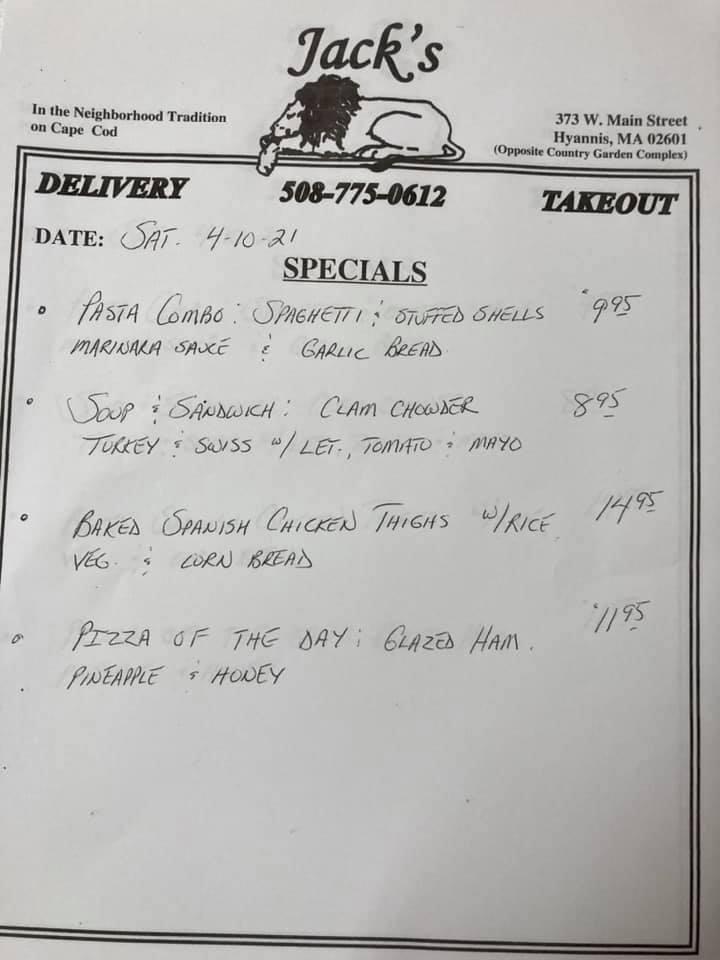 Jack's
In the Neighborhood Tradition
on Cape Cod
373 W. Main Street
Hyannis, MA 02601
(Opposite Country Garden Complex)
DELIVERY 508-775-0612 TAKEOUT
DATE: SAT. 4-10-21
SPECIALS
• PASTA COMBO: SPAGHETTI & STUFFED SHELLS 9.95
MARINARA SAUCE & GARLIC BREAD
• SOUP & SANDWICH: CLAM CHOWDER 8.95
TURKEY & SWISS w/ LET., TOMATO & MAYO
• BAKED SPANISH CHICKEN THIGHS w/RICE 14.95
VEG. & CORN BREAD
• PIZZA OF THE DAY: GLAZED HAM. 11.95
PINEAPPLE & HONEY